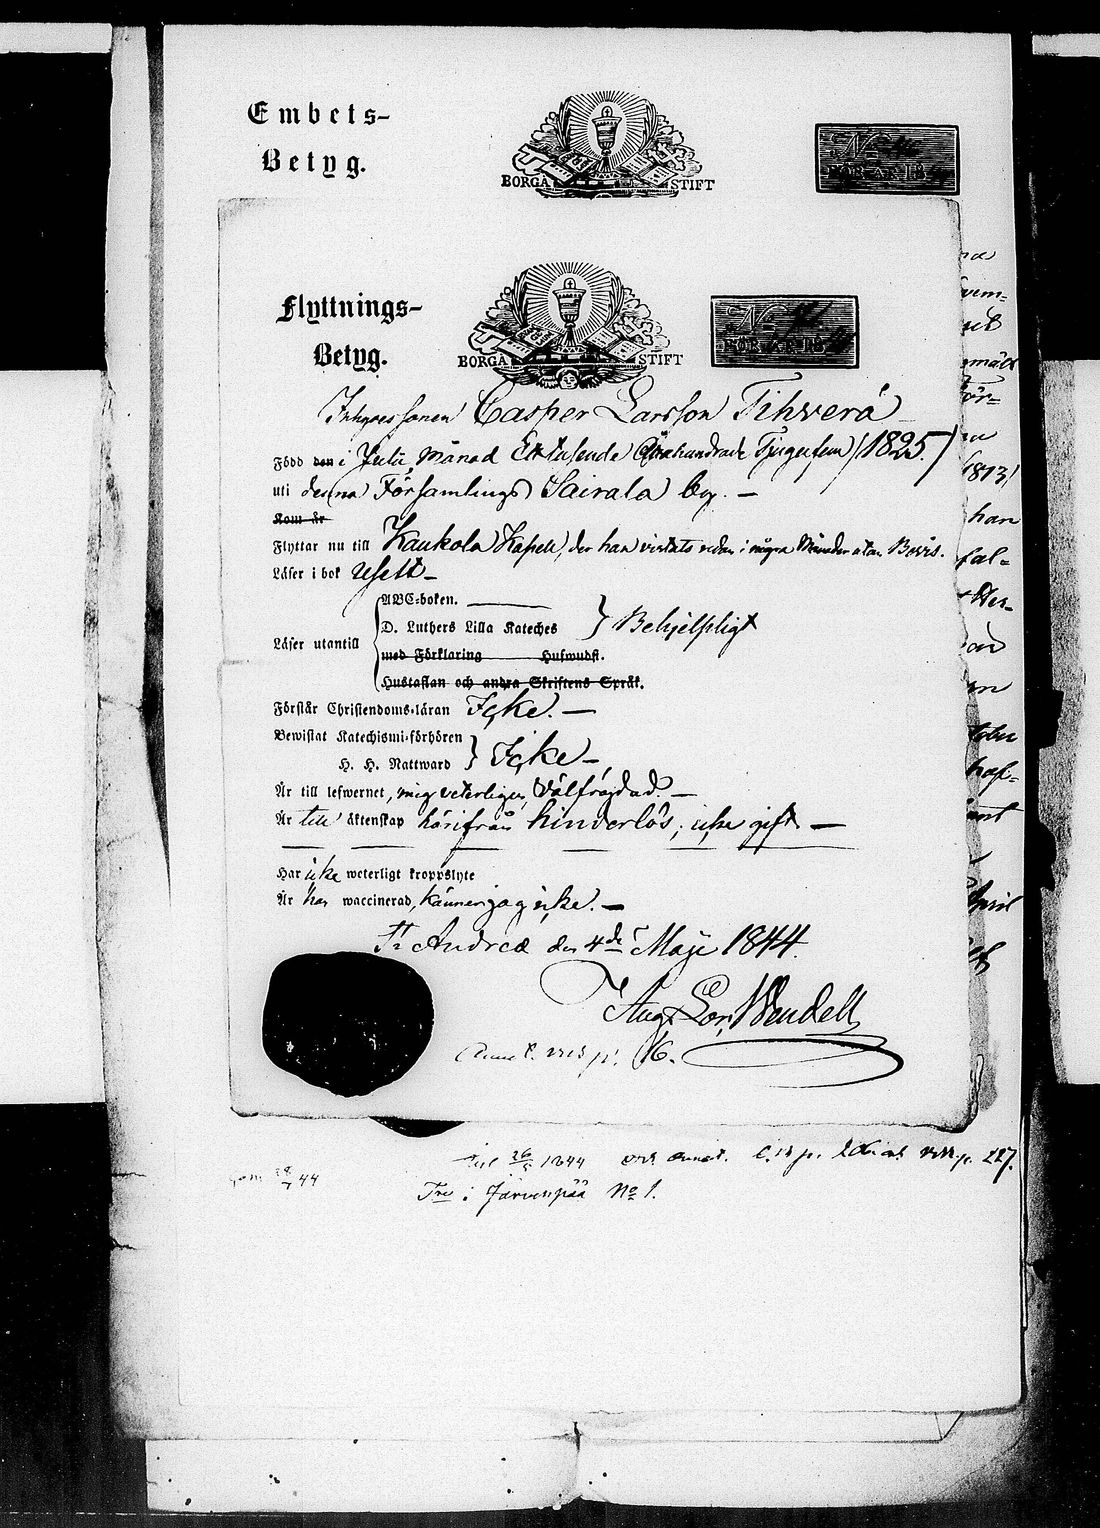 Embets-
Betyg.
BORGÅ STIFT
No
FÖR ÅR 18
Flyttnings-
Betyg.
BORGÅ STIFT
No
FÖR ÅR 18
Inhyses sonen Casper Larsson Tihverä
Född den i Julii Månad Ett tusende Åttahundrade Tjugufem (1825.)
uti denna Församlings Sairala by. —
Kom år
Flyttar nu till Kaukola Kapell, der han vistats redan i några Månader utan Bevis.
Läser i bok Uselt —
ABC-boken. ———
D. Luthers Lilla Kateches } Behjelpligt
Läser utantill
med Förklaring Hufwudst.
Hustaflan och andra Skriftens Språk.
Förstår Christendoms-läran Icke. —
Bewistat Katechismi-förhören
H. H. Nattward } Icke —
Är till lefwernet, mig veterligen, välfrägdad. —
Är till äktenskap härifrån hinderlös; icke gift —
Har icke weterligt kroppslyte
Är har waccinerad, känner jag icke. —
Fr. Andreæ den 4de Maji 1844.
Aug. Lor. Wendell
p. 16.
26/5 1844 p. 227.
44
i Järvenpää No 1.
ut
han
1813)
fal-
April